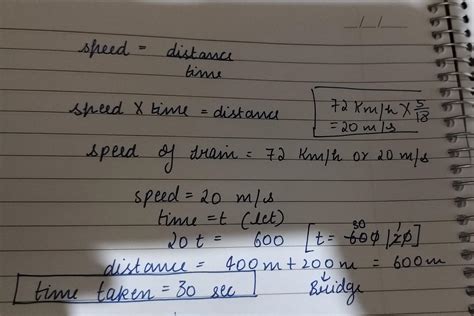 __/__/__
speed = distance
time
speed X time = distance
72 Km/h X 5/18
= 20 m/s
speed of train = 72 Km/h or 20 m/s
speed = 20 m/s
time = t (let)
20 t = 600 [t = 600/20]
30 1
distance = 400m + 200m = 600m
time taken = 30 sec
Bridge